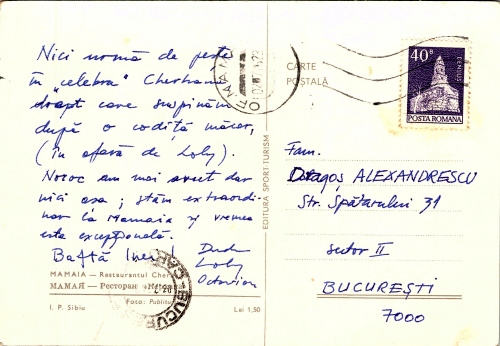 Nici urmă de pește
în „celebra" Cherhana
drept care suspinăm
după o codiță măcar,
(în afară de Loly).
Noroc am mai avut dar
nici așa; stăm extraordi-
nar la Mamaia și vremea
este excepțională.
Baftă
Dudu
Loly
Octavian
MAMAIA — Restaurantul Cherhana
МАМАЯ — Ресторан
Foto: Publitur
I. P. Sibiu
Lei 1,50
EDITURA SPORT-TURISM
CARTE
POȘTALĂ
40 B
DENSUȘ
POSTA ROMANA
Fam.
Dragoș ALEXANDRESCU
Str. Spătarului 31
sector II
BUCUREȘTI
7000